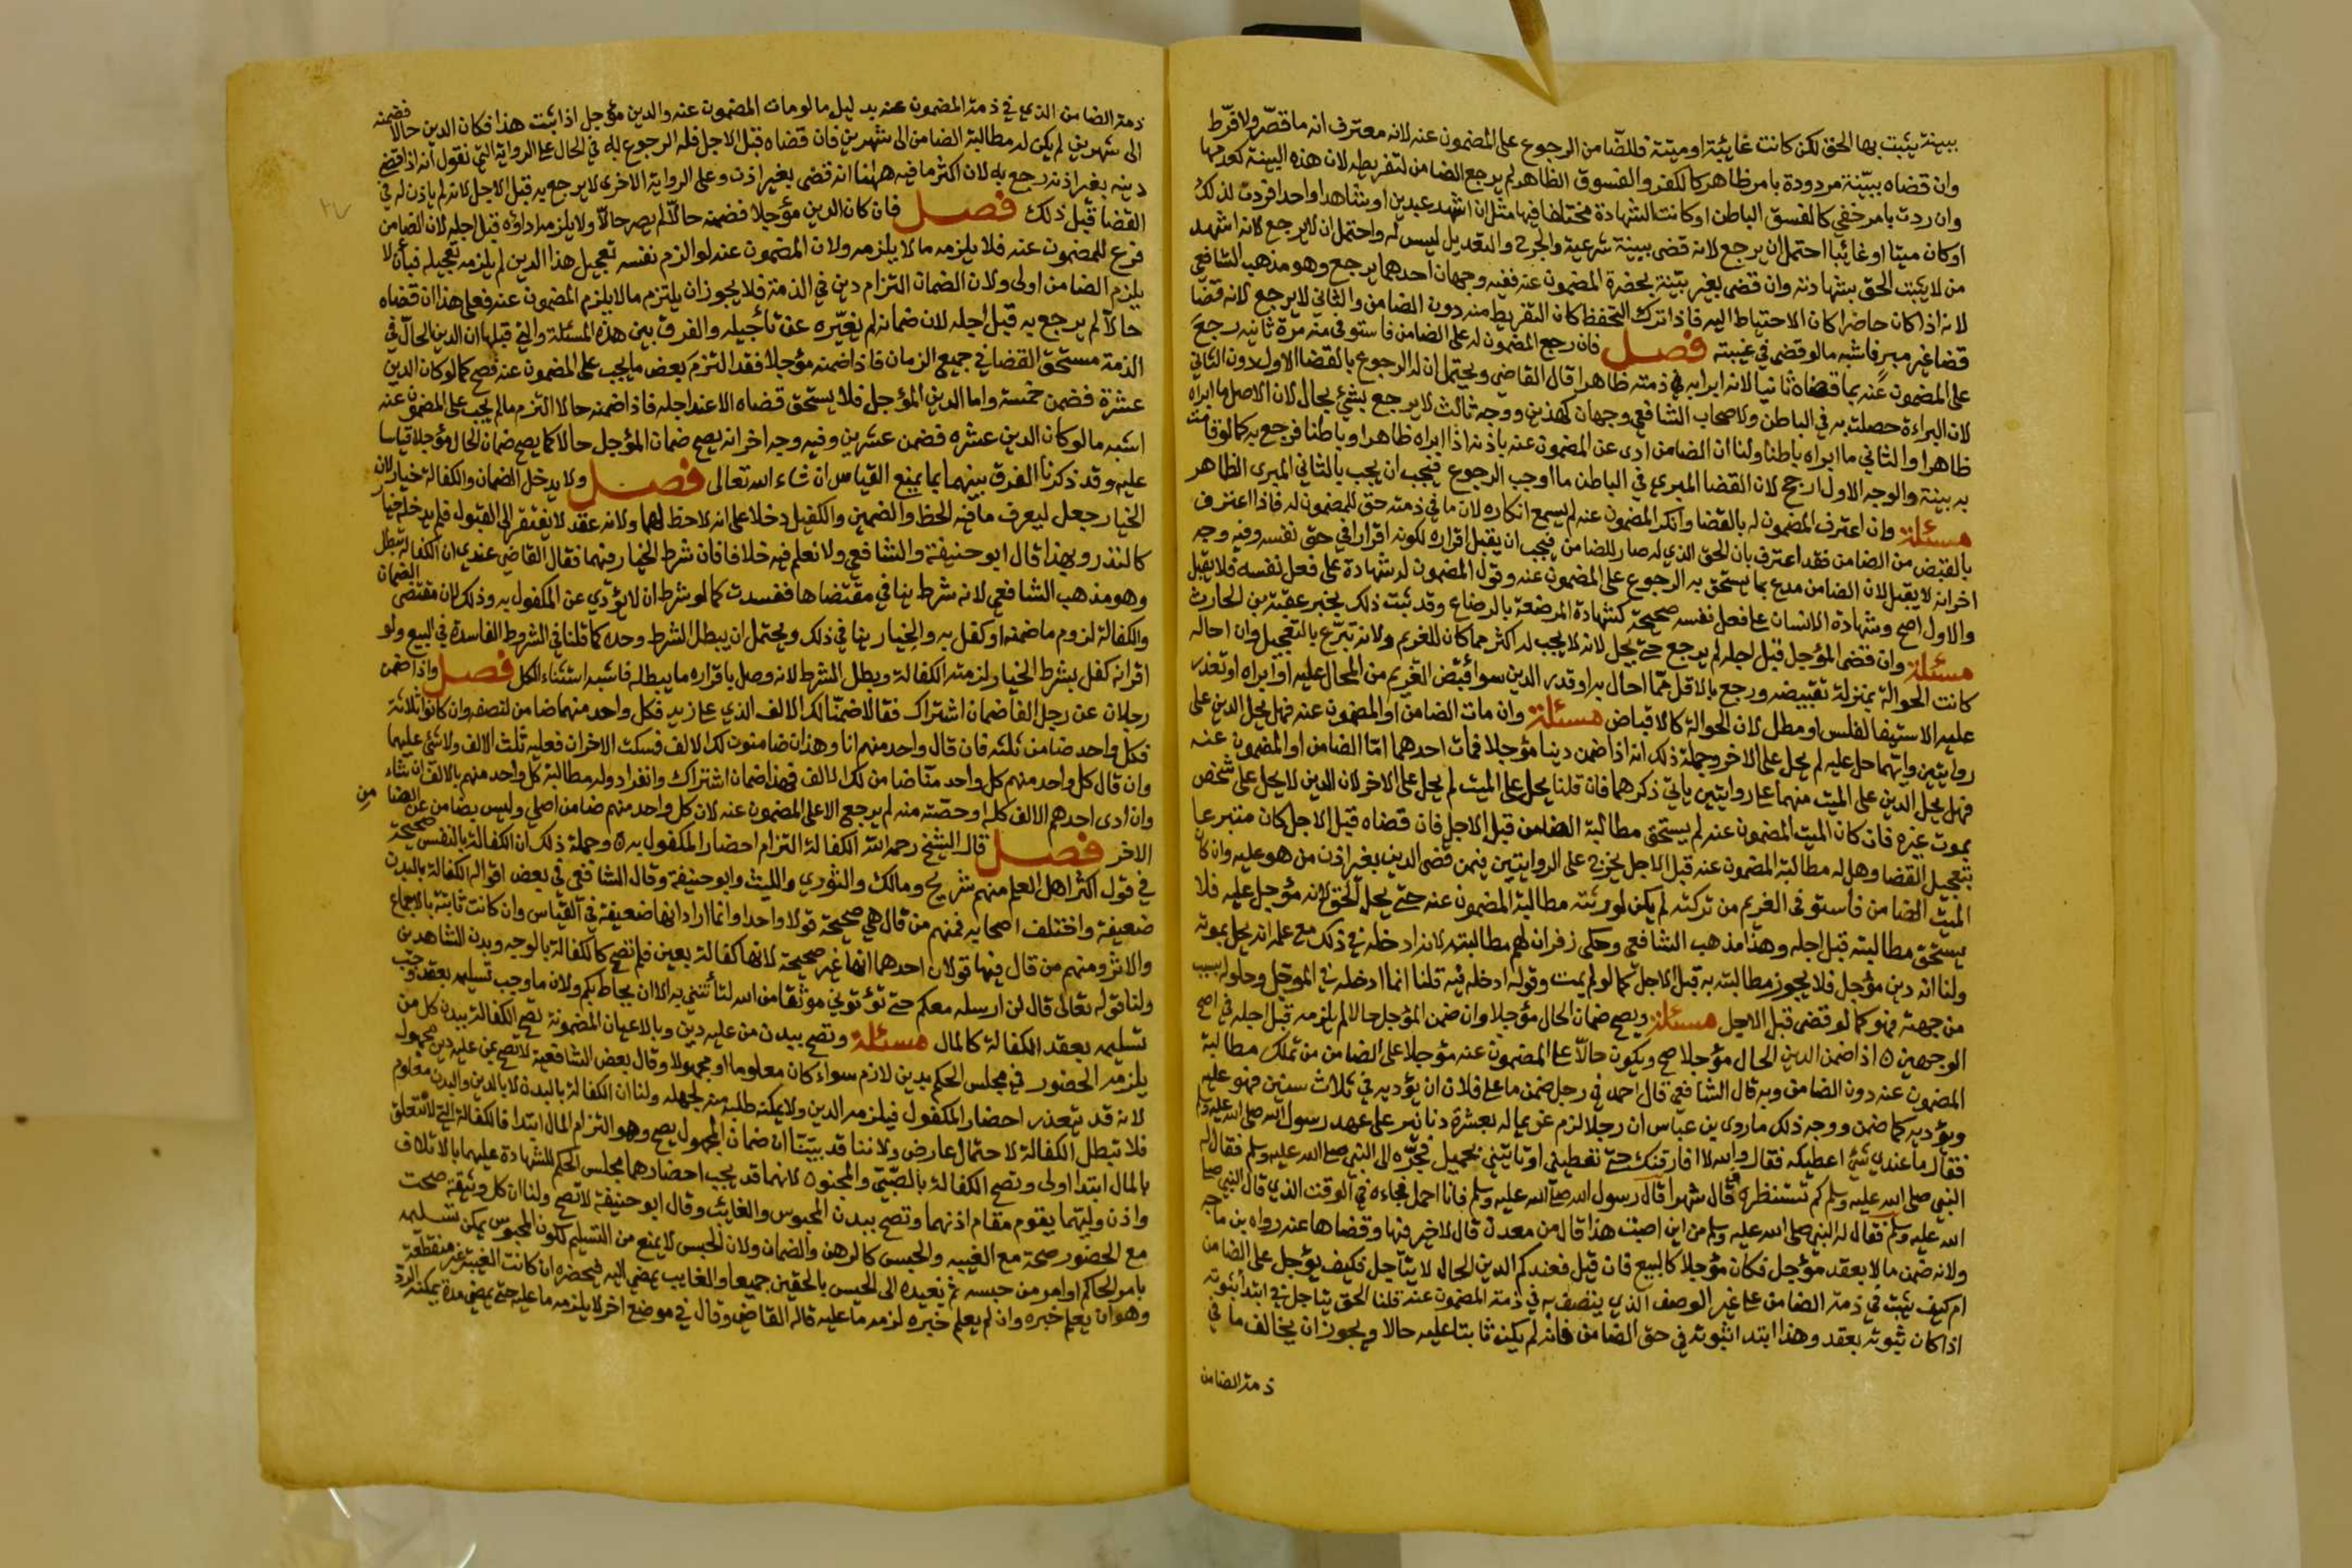 ببينة يثبت بها الحق لكن كانت غائبة او ميتة فللضامن الرجوع على المضمون عنه لانه معترف انه ما قصّر ولا فرّط
وان قضاه ببيّنة مردودة بامر ظاهر كالكفر والفسوق الظاهر لم يرجع الضامن لتفريطه لان هذه البينة كعدمها
وان ردت بامر خفي كالفسق الباطن او كانت الشهادة مختلفا فيها مثل ان اشهد عبدين او شاهدا واحدا فردت لذلك
او كان ميتا او غائبا احتمل ان يرجع لانه قضى ببينة شرعية والجرح والتعديل ليس له واحتمل ان لا يرجع لانه اشهد
من لا يثبت الحق بشهادته وان قضى بغير بيّنة بحضرة المضمون عنه ففيه وجهان احدهما يرجع وهو مذهب الشافعي
لانه اذا كان حاضرا كان الاحتياط اليه فاذا ترك التحفظ كان التفريط منه دون الضامن والثاني لا يرجع لانه قضا
قضا غير مبر فاشبه ما لو قضى في غيبته فصل فان رجع المضمون له على الضامن فاستوفى منه مرة ثانية رجع
على المضمون عنه بما قضاه ثانيا لانه ابرا به في ذمته ظاهرا قال القاضي ويحتمل ان له الرجوع بالقضا الاول دون الثاني
لان البراءة حصلت به في الباطن ولاصحاب الشافعي وجهان كهذين ووجه ثالث لا يرجع بشئ بحال لان الاول ما ابراه
ظاهرا والثاني ما ابراه باطنا ولنا ان الضامن ادى عن المضمون عنه باذنه اذا ابراه ظاهرا وباطنا فرجع به كما لو قامت
به بينة والوجه الاول ارجح لان القضا المبرئ في الباطن ما اوجب الرجوع فيجب ان يجب بالثاني المبرى الظاهر
مسئلة وان اعترف المضمون له بالقضا وانكر المضمون عنه لم يسمع انكاره لان ما في ذمته حق للمضمون له فاذا اعترف
بالقبض من الضامن فقد اعترف بان الحق الذي له صار للضامن فيجب ان يقبل اقراره لكونه اقرارا في حق نفسه وفيه وجه
اخر انه لا يقبل لان الضامن مدع بما يستحق به الرجوع على المضمون عنه وقول المضمون له شهادة على فعل نفسه فلا يقبل
والاول اصح وشهادة الانسان على فعل نفسه صحيحة كشهادة المرضعة بالرضاع وقد ثبت ذلك بخبر عقبة بن الحارث
مسئلة وان قضى المؤجل قبل اجله لم يرجع حتى يحل لانه لا يجب له اكثر مما كان للغريم ولانه تبرّع بالتعجيل وان احاله
كانت الحوالة بمنزلة تقبيضه ورجع بالاقل ممّا احال به او قدر الدين سوا قبض الغريم من المحال عليه او ابراه او تعذر
عليه الاستيفا لفلس او مطل لان الحوالة كالاقباض مسئلة وان مات الضامن او المضمون عنه فهل يحل الدين على
روايتين وايهما حل عليه لم يحل على الاخر وجملة ذلك انه اذا ضمن دينا مؤجلا فمات احدهما امّا الضامن او المضمون عنه
فهل يحل الدين على الميت منهما على روايتين ياتي ذكرهما فان قلنا يحل على الميت لم يحل على الاخر لان الدين لا يحل على شخص
بموت غيره فان كان الميت المضمون عنه لم يستحق مطالبة الضامن قبل الاجل فان قضاه قبل الاجل كان متبرعا
بتعجيل القضا وهل له مطالبة المضمون عنه قبل الاجل يخرج على الروايتين فيمن قضى الدين بغير اذن من هو عليه وان كان
الميت الضامن فاستوفى الغريم من تركته لم يكن لورثته مطالبة المضمون عنه حتى يحل الحق لانه مؤجل عليه فلا
يستحق مطالبته قبل اجله وهذا مذهب الشافعي وحكي زفر ان لهم مطالبته لانه ادخله في ذلك مع علمه انه يحل بموته
ولنا انه دين مؤجل فلا يجوز مطالبته به قبل الاجل كما لو لم يمت وقوله ادخله فيه قلنا انما ادخله في المؤجل وحلوله بسبب
من جهته فهو كما لو قضى قبل الاجل مسئلة ويصح ضمان الحال مؤجلا وان ضمن المؤجل حالا لم يلزمه قبل اجله في اصح
الوجهين ه اذا ضمن الدين الحال مؤجلا صح ويكون حالّا على المضمون عنه مؤجلا على الضامن من تملك مطالبة
المضمون عنه دون الضامن وبه قال الشافعي قال احمد في رجل ضمن ما على فلان ان يؤديه في ثلاث سنين فهو عليه
ويؤديه كما ضمن ووجه ذلك ما روى بن عباس ان رجلا لزم غريما له بعشرة دنانير على عهد رسول الله صلى الله عليه وسلم
فقال ما عندي شئ اعطيكه فقال والله لا افارقنك حتى تعطيني او تاتيني بحميل فجرّه الى النبي صلى الله عليه وسلم فقال له
النبي صلى الله عليه وسلم كم تستنظره قال شهرا قال رسول الله صلى الله عليه وسلم فانا احمل فجاءه في الوقت الذي قال النبي صلى
الله عليه وسلم فقال له النبي صلى الله عليه وسلم من اين اصبت هذا قال من معدن قال لا خير فيها وقضاها عنه رواه بن ماجه
ولانه ضمن مالا بعقد مؤجل فكان مؤجلا كالبيع فان قيل فعندكم الدين الحال لا يتاجل فكيف يؤجل على الضامن
ام كيف يثبت في ذمة الضامن على غير الوصف الذي يتصف به في ذمة المضمون عنه قلنا الحق يتاجل في ابتدأ ثبوته
اذا كان ثبوته بعقد وهذا ابتدا ثبوته في حق الضامن فانه لم يكن ثابتا عليه حالا ويجوز ان يخالف ما في
ذمة الضامن
ذمة الضامن الذي في ذمة المضمون عنه بدليل ما لو مات المضمون عنه والدين مؤجل اذا ثبت هذا فكان الدين حالا فضمنه
الى شهرين لم يكن له مطالبة الضامن الى شهرين فان قضاه قبل الاجل فله الرجوع به في الحال على الرواية التي نقول انه اذا قضى
دينه بغير اذنه رجع به لان اكثر ما فيه ههنا انه قضى بغير اذن وعلى الرواية الاخرى لا يرجع به قبل الاجل لانه لم ياذن له في
القضا قبل ذلك فصل فان كان الدين مؤجلا فضمنه حالّا لم يصر حالّا ولا يلزمه اداؤه قبل اجله لان الضامن
فرع للمضمون عنه فلا يلزمه ما لا يلزمه ولان المضمون عنه لو الزم نفسه تعجيل هذا الدين لم يلزمه تعجيله فبأن لا
يلزم الضامن اولى ولان الضمان التزام دين في الذمة فلا يجوز ان يلتزم ما لا يلزم المضمون عنه فعلى هذا ان قضاه
حالّا لم يرجع به قبل اجله لان ضمانه لم يغيّره عن تأجيله والفرق بين هذه المسئلة والتي قبلها ان الدين الحال في
الذمة مستحق القضا في جميع الزمان فاذا ضمنه مؤجلا فقد التزم بعض ما يجب على المضمون عنه فصح كما لو كان الدين
عشرة فضمن خمسة واما الدين المؤجل فلا يستحق قضاه الا عند اجله فاذا ضمنه حالا التزم ما لم يجب على المضمون عنه
اشبه ما لو كان الدين عشره فضمن عشرين وفيه وجه اخر انه يصح ضمان المؤجل حالا كما يصح ضمان الحال مؤجلا قياسا
عليه وقد ذكرنا الفرق بينهما بما يمنع القياس ان شاء الله تعالى فصل ولا يدخل الضمان والكفالة خيار لان
الخيار جعل ليعرف ما فيه الحظ والضمين والكفيل دخلا على انه لا حظ لهما ولانه عقد لا يفتقر الى القبول فلم يدخله خيار
كالنذر وبهذا قال ابو حنيفة والشافعي ولا نعلم فيه خلافا فان شرط الخيار فيهما فقال القاضي عندي ان الكفالة تبطل
وهو مذهب الشافعي لانه شرط ينافي مقتضاها ففسدت كما لو شرط ان لا يؤدي عن المكفول به وذلك لان مقتضى الضمان
والكفالة لزوم ما ضمنه او كفل به والخيار ينافي ذلك ويحتمل ان يبطل الشرط وحده كما قلنا في الشروط الفاسدة في البيع ولو
اقر انه كفل بشرط الخيار لزمته الكفالة وبطل الشرط لانه وصل باقراره ما يبطله فاشبه استثناء الكل فصل واذا ضمن
رجلان عن رجل الفا ضمان اشتراك فقالا ضمنّا لك الالف الذي على زيد فكل واحد منهما ضامن لنصفه وان كانوا ثلاثة
فكل واحد ضامن ثلثه فان قال واحد منهم انا وهذان ضامنون لك الالف فسكت الاخران فعليه ثلث الالف ولا شئ عليهما
وان قال كل واحد منهم كل واحد منّا ضامن لك الالف فهذا ضمان اشتراك وانفراد وله مطالبة كل واحد منهم بالالف ان شاء
وان ادى احدهم الالف كله او حصّته منه لم يرجع الا على المضمون عنه لان كل واحد منهم ضامن اصلي وليس بضامن عن الضامن
الاخر فصل قال الشيخ رحمه الله الكفالة التزام احضار المكفول به ه وجملة ذلك ان الكفالة بالنفس صحيحة
في قول اكثر اهل العلم منهم شريح ومالك والثوري والليث وابو حنيفة وقال الشافعي في بعض اقواله الكفالة بالبدن
ضعيفة واختلف اصحابه فمنهم من قال هي صحيحة قولا واحدا وانما اراد انها ضعيفة في القياس وان كانت ثابتة بالاجماع
والاثر ومنهم من قال فيها قولان احدهما انها غير صحيحة لانها كفالة بعين فلم تصح كالكفالة بالوجه وبدن الشاهدين
ولنا قوله تعالى قال لن ارسله معكم حتى تؤتوني موثقا من الله لتأتنني به الا ان يحاط بكم ولان ما وجب تسليمه بعقد وجب
تسليمه بعقد الكفالة كالمال مسئلة وتصح ببدن من عليه دين وبالاعيان المضمونة تصح الكفالة ببدن كل من
يلزمه الحضور في مجلس الحكم بدين لازم سواء كان معلوما او مجهولا وقال بعض الشافعية لا تصح بمن عليه دين مجهول
لانه قد يتعذر احضار المكفول فيلزمه الدين ولا يمكنه طلبه منه لجهله ولنا ان الكفالة بالبدن لا بالدين والبدن معلوم
فلا تبطل الكفالة لاحتمال عارض ولاننا قد بيّنّا ان ضمان المجهول يصح وهو التزام المال ابتدا فالكفالة التي لا تتعلق
بالمال ابتدا اولى وتصح الكفالة بالصّبيّ والمجنون لانهما قد يجب احضارهما مجلس الحكم للشهادة عليهما بالاتلاف
واذن وليّهما يقوم مقام اذنهما وتصح ببدن المحبوس والغائب وقال ابو حنيفة لا تصح ولنا ان كل وثيقة صحت
مع الحضور صحت مع الغيبه والحبس كالرهن والضمان ولان الحبس لا يمنع من التسليم لكون المحبوس يمكن تسليمه
بامر الحاكم او امر من حبسه ثم نعيده الى الحبس بالحقين جميعا والغايب يمضي اليه فيحضره ان كانت الغيبة غير منقطعة
وهو ان يعلم خبره وان لم يعلم خبره لزمه ما عليه قاله القاضي وقال في موضع اخر لا يلزمه ما عليه حتى يمضي مدة يمكنه الرد